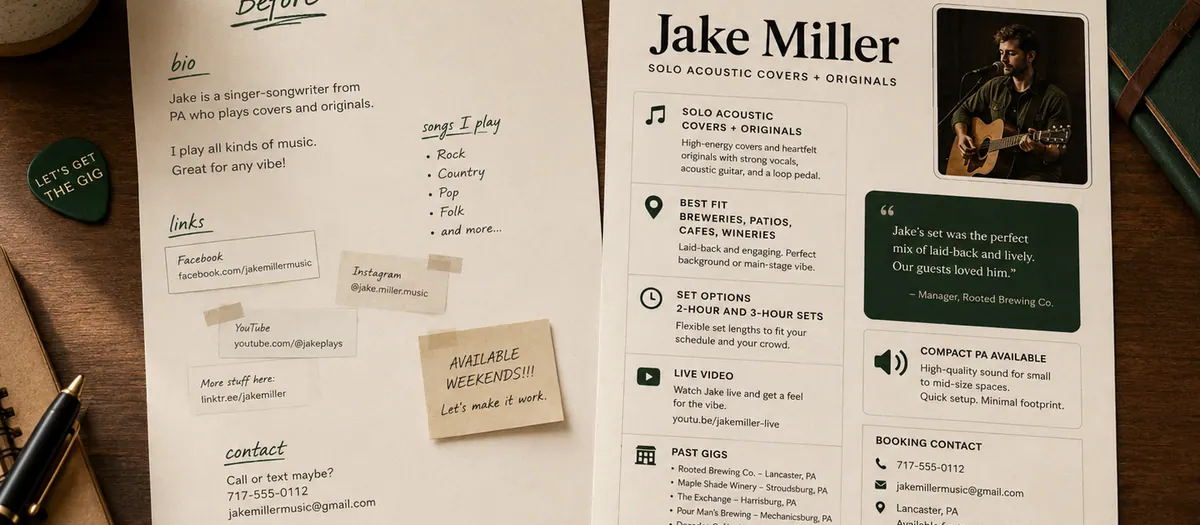 Before
bio
Jake is a singer-songwriter from
PA who plays covers and originals.
I play all kinds of music.
Great for any vibe!
songs I play
• Rock
• Country
• Pop
• Folk
• and more...
links
Facebook
facebook.com/jakemillermusic
Instagram
@jake.miller.music
YouTube
youtube.com/@jakeplays
More stuff here:
linktr.ee/jakemiller
AVAILABLE
WEEKENDS!!!
Let's make it work.
contact
Call or text maybe?
717-555-0112
jakemillermusic@gmail.com
LET'S GET
THE GIG
Jake Miller
SOLO ACOUSTIC COVERS + ORIGINALS
SOLO ACOUSTIC
COVERS + ORIGINALS
High-energy covers and heartfelt
originals with strong vocals,
acoustic guitar, and a loop pedal.
BEST FIT
BREWERIES, PATIOS,
CAFES, WINERIES
Laid-back and engaging. Perfect
background or main-stage vibe.
SET OPTIONS
2-HOUR AND 3-HOUR SETS
Flexible set lengths to fit your
schedule and your crowd.
LIVE VIDEO
Watch Jake live and get a feel
for the vibe.
youtu.be/jakemiller-live
PAST GIGS
• Rooted Brewing Co. – Lancaster, PA
• Maple Shade Winery – Stroudsburg, PA
• The Exchange – Harrisburg, PA
• Pour Man's Brewing – Mechanicsburg, PA
“
Jake's set was the perfect
mix of laid-back and lively.
Our guests loved him.”
– Manager, Rooted Brewing Co.
COMPACT PA AVAILABLE
High-quality sound for small
to mid-size spaces.
Quick setup. Minimal footprint.
BOOKING CONTACT
717-555-0112
jakemillermusic@gmail.com
Lancaster, PA
Available